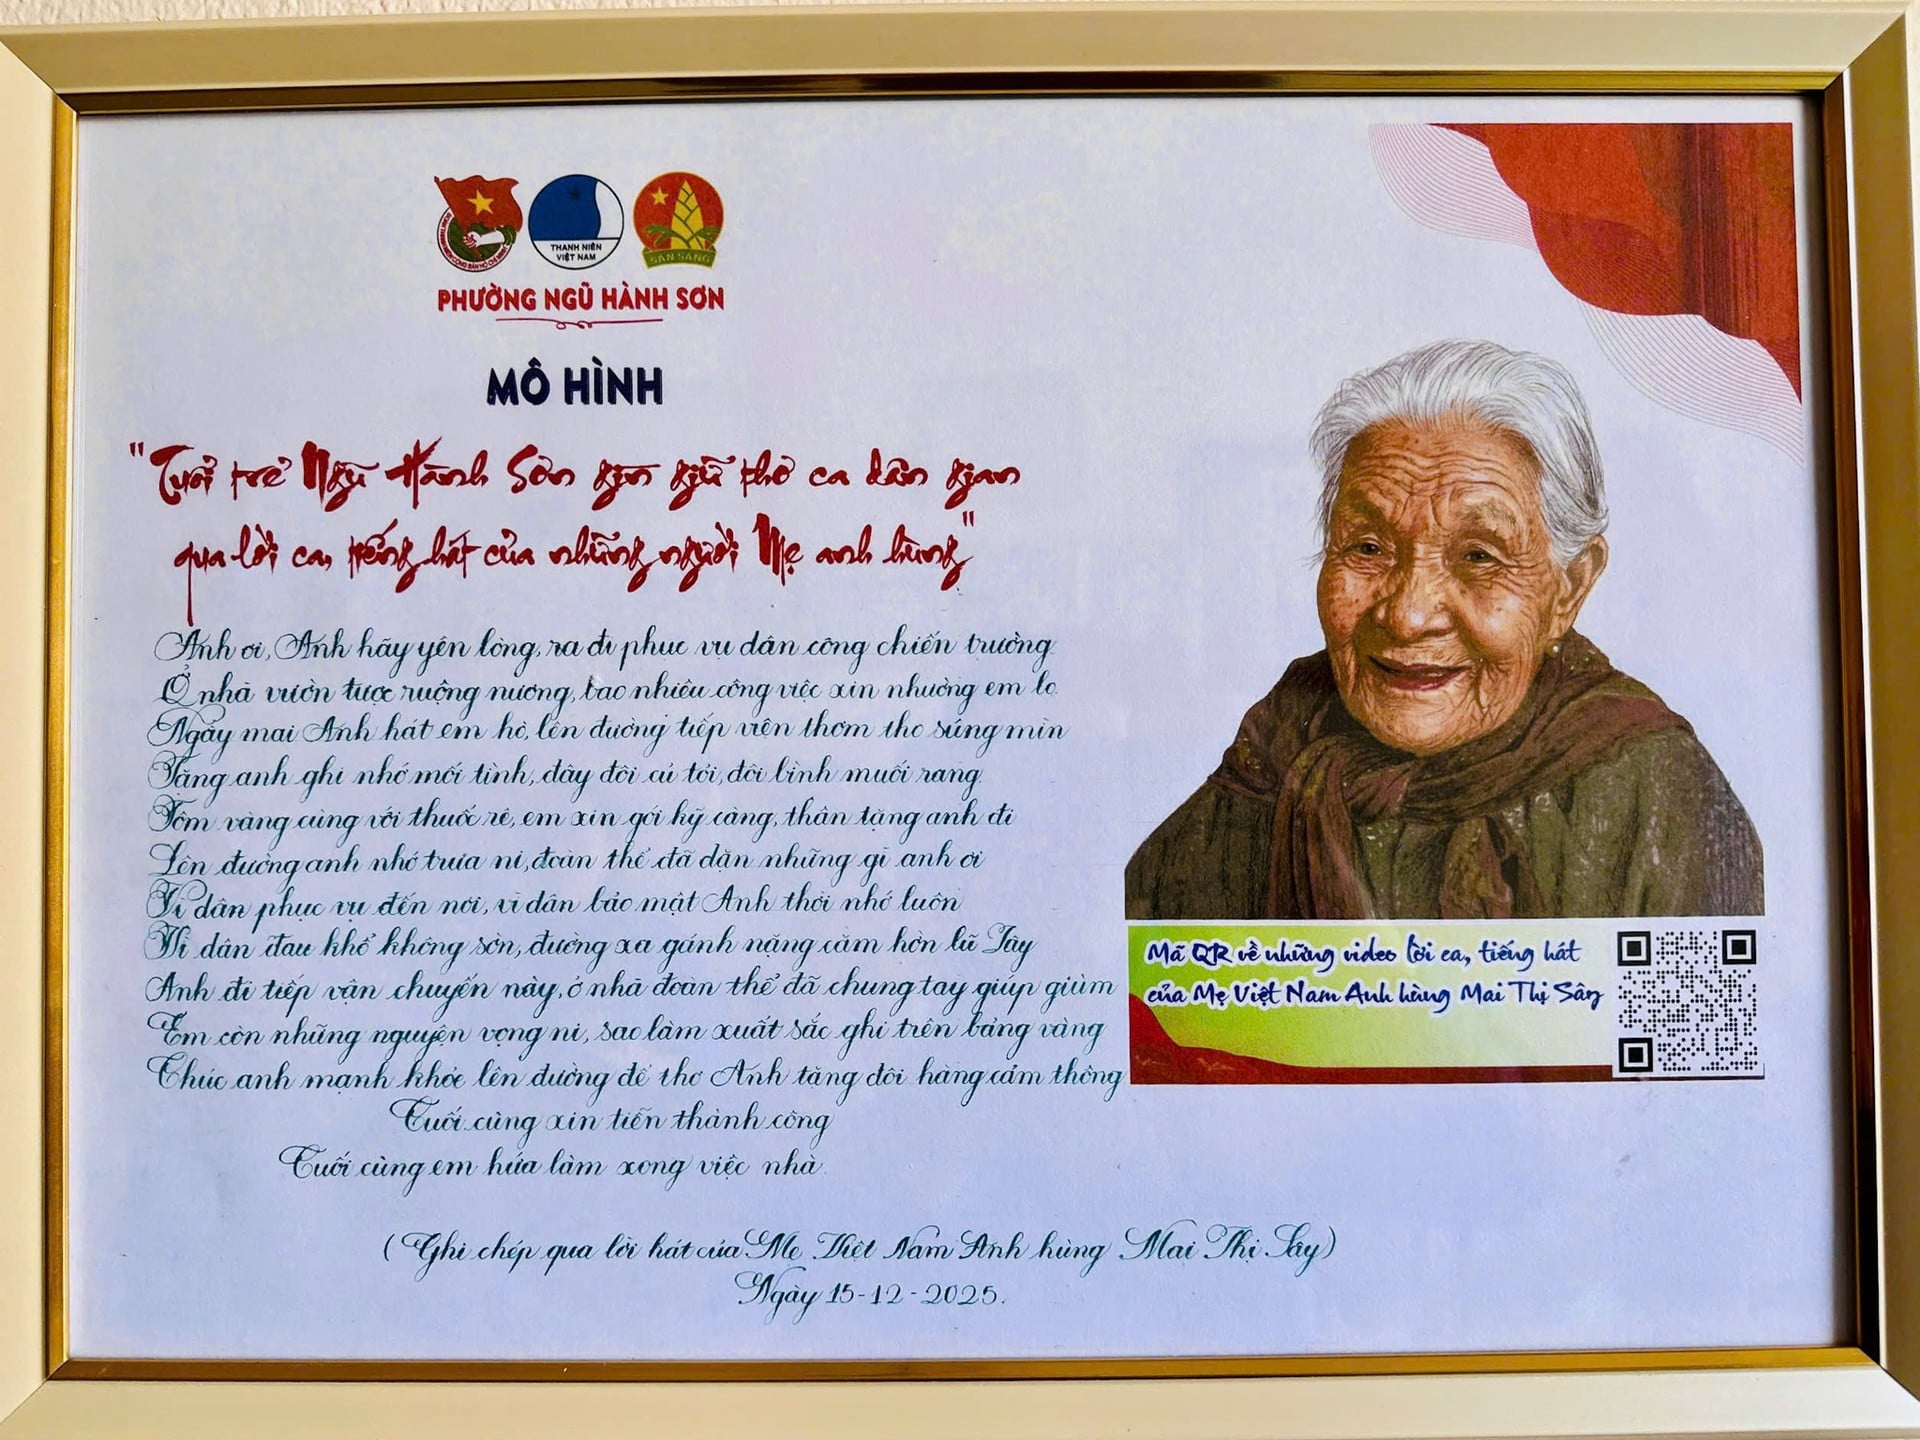 THANH NIÊN
VIỆT NAM
SẴN SÀNG
PHƯỜNG NGŨ HÀNH SƠN
MÔ HÌNH
"Tuổi trẻ Ngũ Hành Sơn gìn giữ thơ ca dân gian
qua lời ca, tiếng hát của những người Mẹ anh hùng"
Anh ơi, Anh hãy yên lòng, ra đi phục vụ dân công chiến trường
Ở nhà vườn tược ruộng nương, bao nhiêu công việc xin nhường em lo
Ngày mai Anh hát em hò, lên đường tiếp viên thơm tho súng mìn
Tặng anh ghi nhớ mối tình, đây đôi củ tỏi, đôi bình muối rang
Tôm vàng cùng với thuốc rê, em xin gói kỹ càng, thân tặng anh đi
Lên đường anh nhớ trưa ni, đoàn thể đã dặn những gì anh ơi
Vì dân phục vụ đến nơi, vì dân bảo mật Anh thời nhớ luôn
Vì dân đau khổ không sờn, đường xa gánh nặng căm hờn lũ Tây
Anh đi tiếp vận chuyến này, ở nhà đoàn thể đã chung tay giúp giùm
Em còn những nguyện vọng ni, sao làm xuất sắc ghi trên bảng vàng
Chúc anh mạnh khỏe lên đường để thơ Anh tặng đôi hàng cảm thông
Cuối cùng xin tiễn thành công
Cuối cùng em hứa làm xong việc nhà
(Ghi chép qua lời hát của Mẹ Việt Nam Anh hùng Mai Thị Sây)
Ngày 15-12-2025.
Mã QR về những video lời ca, tiếng hát
của Mẹ Việt Nam Anh hùng Mai Thị Sây